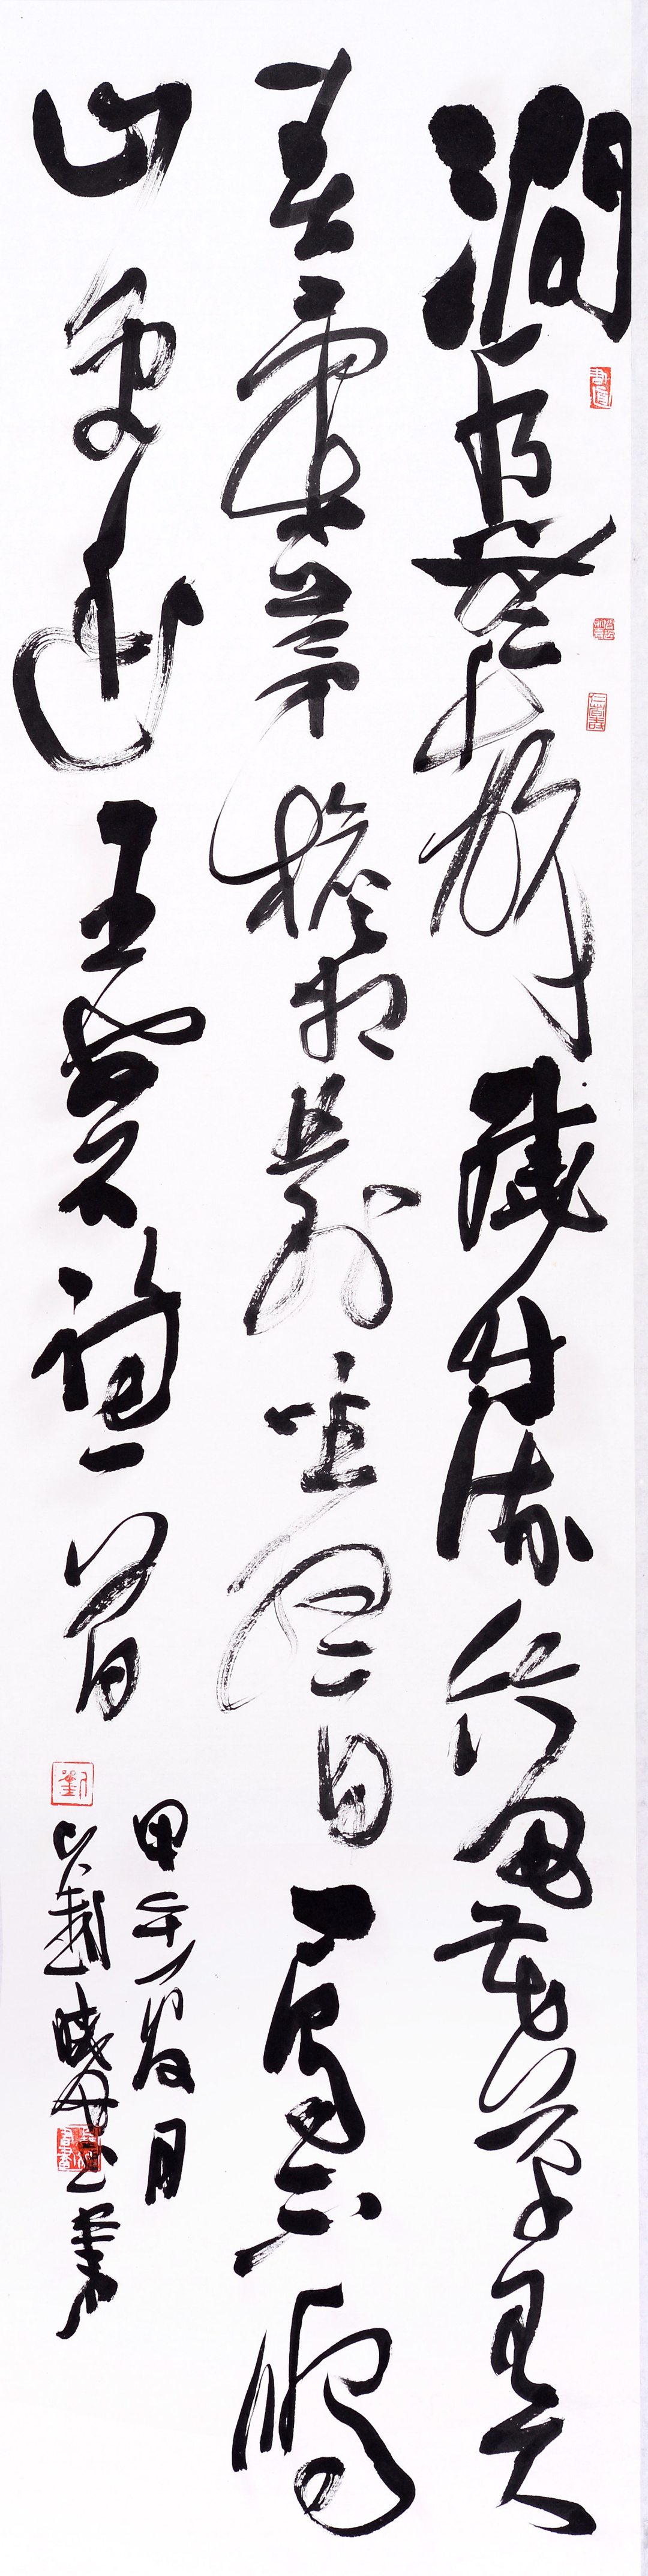 澗水無聲繞竹流竹西花草弄
春柔茅檐相對坐終日一鳥不鳴
山更幽王安石詩一首
甲午 月
劉曉 書